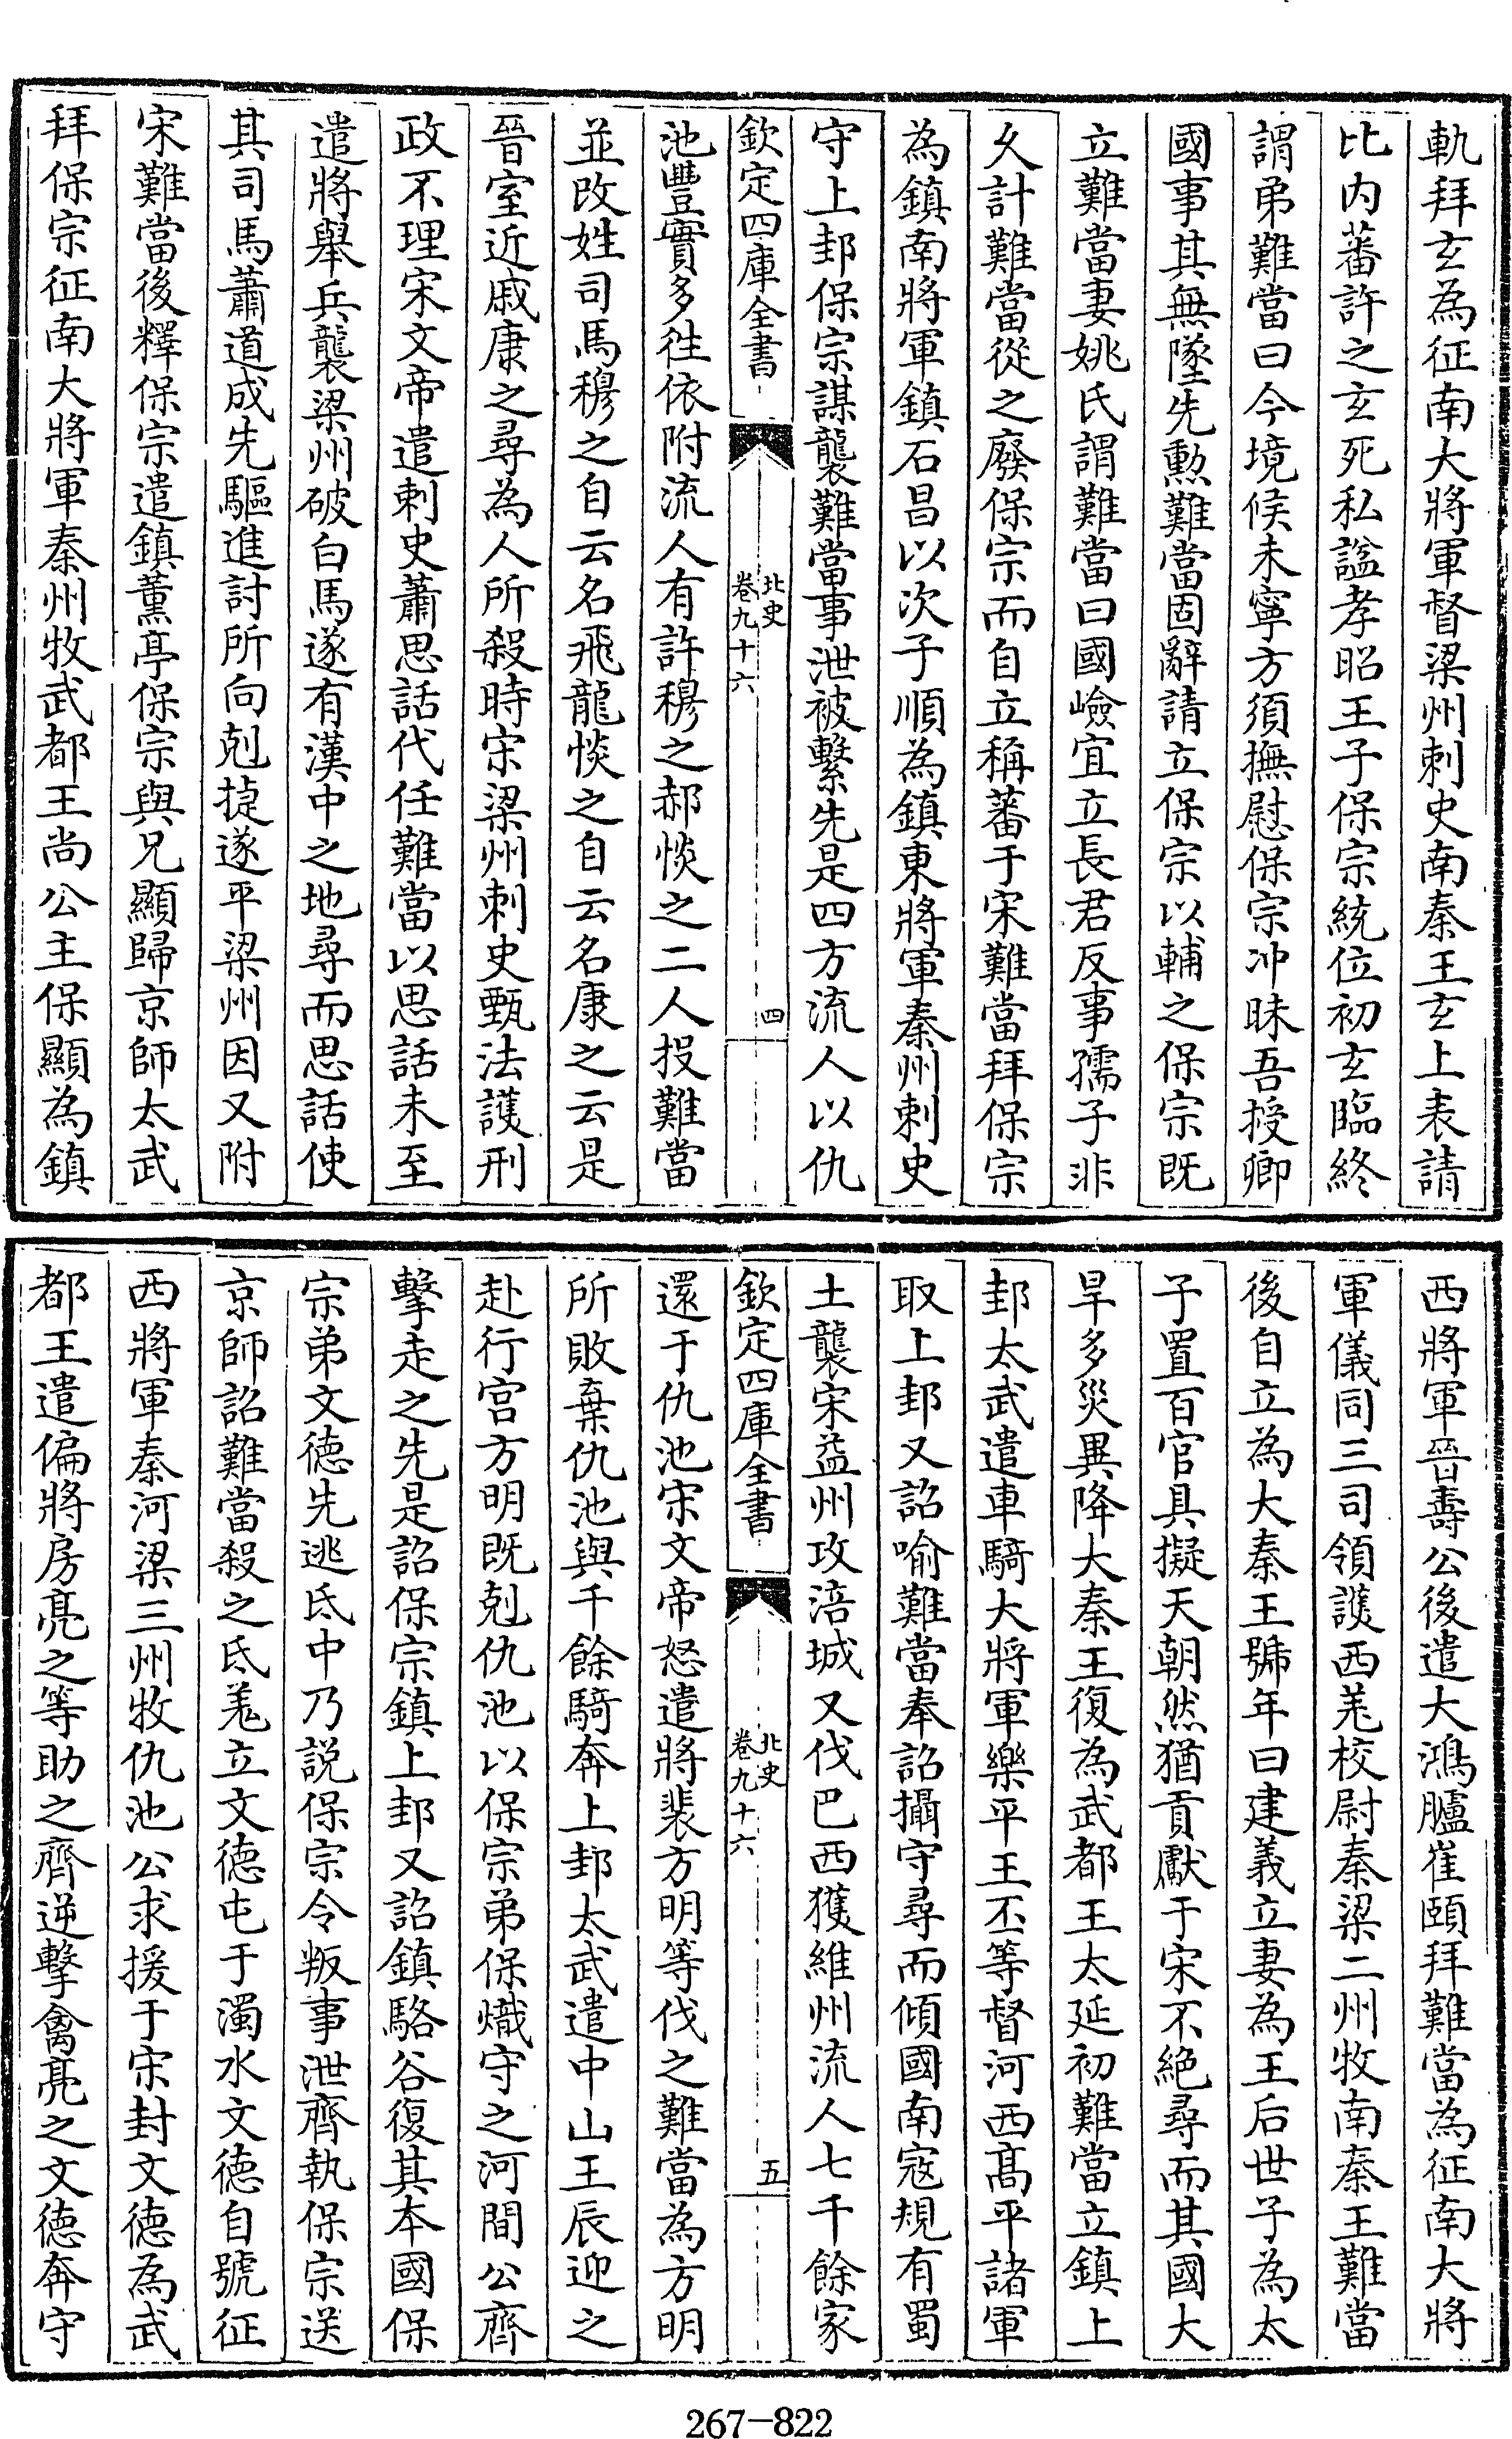 軌拜玄為征南大將軍督梁州刺史南秦王玄上表請
比内蕃許之玄死私諡孝昭王子保宗統位初玄臨終
謂弟難當曰今境候未寧方須撫慰保宗沖昧吾授卿
國事其無墜先勲難當固辭請立保宗以輔之保宗既
立難當妻姚氏謂難當曰國嶮宜立長君反事孺子非
久計難當從之廢保宗而自立稱蕃于宋難當拜保宗
為鎮南將軍鎮石昌以次子順為鎮東將軍秦州刺史
守上邽保宗謀襲難當事泄被繫先是四方流人以仇
欽定四庫全書
北史
卷九十六
四
池豐實多往依附流人有許穆之郝惔之二人投難當
並改姓司馬穆之自云名飛龍惔之自云名康之云是
晉室近戚康之尋為人所殺時宋梁州刺史甄法護刑
政不理宋文帝遣刺史蕭思話代任難當以思話未至
遣將舉兵襲梁州破白馬遂有漢中之地尋而思話使
其司馬蕭道成先驅進討所向剋㨗遂平梁州因又附
宋難當後釋保宗遣鎮薫亭保宗與兄顯歸京師太武
拜保宗征南大將軍秦州牧武都王尚公主保顯為鎮
西將軍晉壽公後遣大鴻臚崔頤拜難當為征南大將
軍儀同三司領護西羌校尉秦梁二州牧南秦王難當
後自立為大秦王號年曰建義立妻為王后世子為太
子置百官具擬天朝然猶貢獻于宋不絶尋而其國大
旱多災異降大秦王復為武都王太延初難當立鎮上
邽太武遣車騎大將軍樂平王丕等督河西髙平諸軍
取上邽又詔喻難當奉詔攝守尋而傾國南寇規有蜀
土襲宋益州攻涪城又伐巴西獲維州流人七千餘家
欽定四庫全書
北史
卷九十六
五
還于仇池宋文帝怒遣將裴方明等伐之難當為方明
所敗棄仇池與千餘騎奔上邽太武遣中山王辰迎之
赴行宫方明既剋仇池以保宗弟保熾守之河間公齊
擊走之先是詔保宗鎮上邽又詔鎮駱谷復其本國保
宗弟文徳先逃氐中乃説保宗令叛事泄齊執保宗送
京師詔難當殺之氐羌立文徳屯于濁水文徳自號征
西將軍秦河梁三州牧仇池公求援于宋封文徳為武
都王遣偏將房亮之等助之齊逆擊禽亮之文徳奔守
267-822